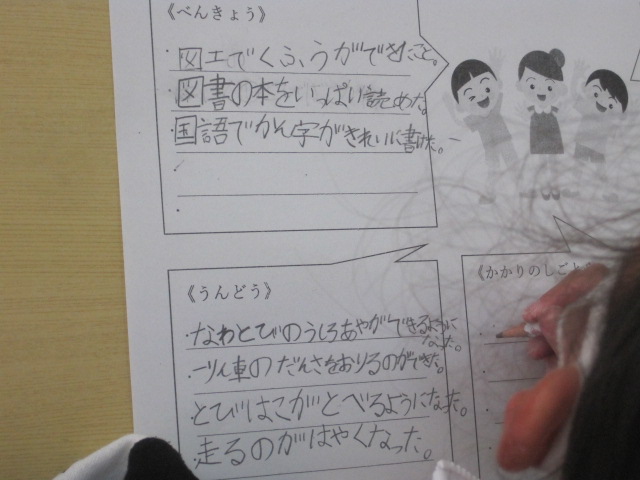 《べんきょう》
・図工でくふうができたこと。
・図書の本をいっぱい読めた。
・国語でかん字がきれいに書けた。
《うんどう》
・なわとびのうしろあやができるように
なった。
・一りん車のだんさをおりるのができた。
・とびばこがとべるようになった。
・走るのがはやくなった。
《かかりのしごと